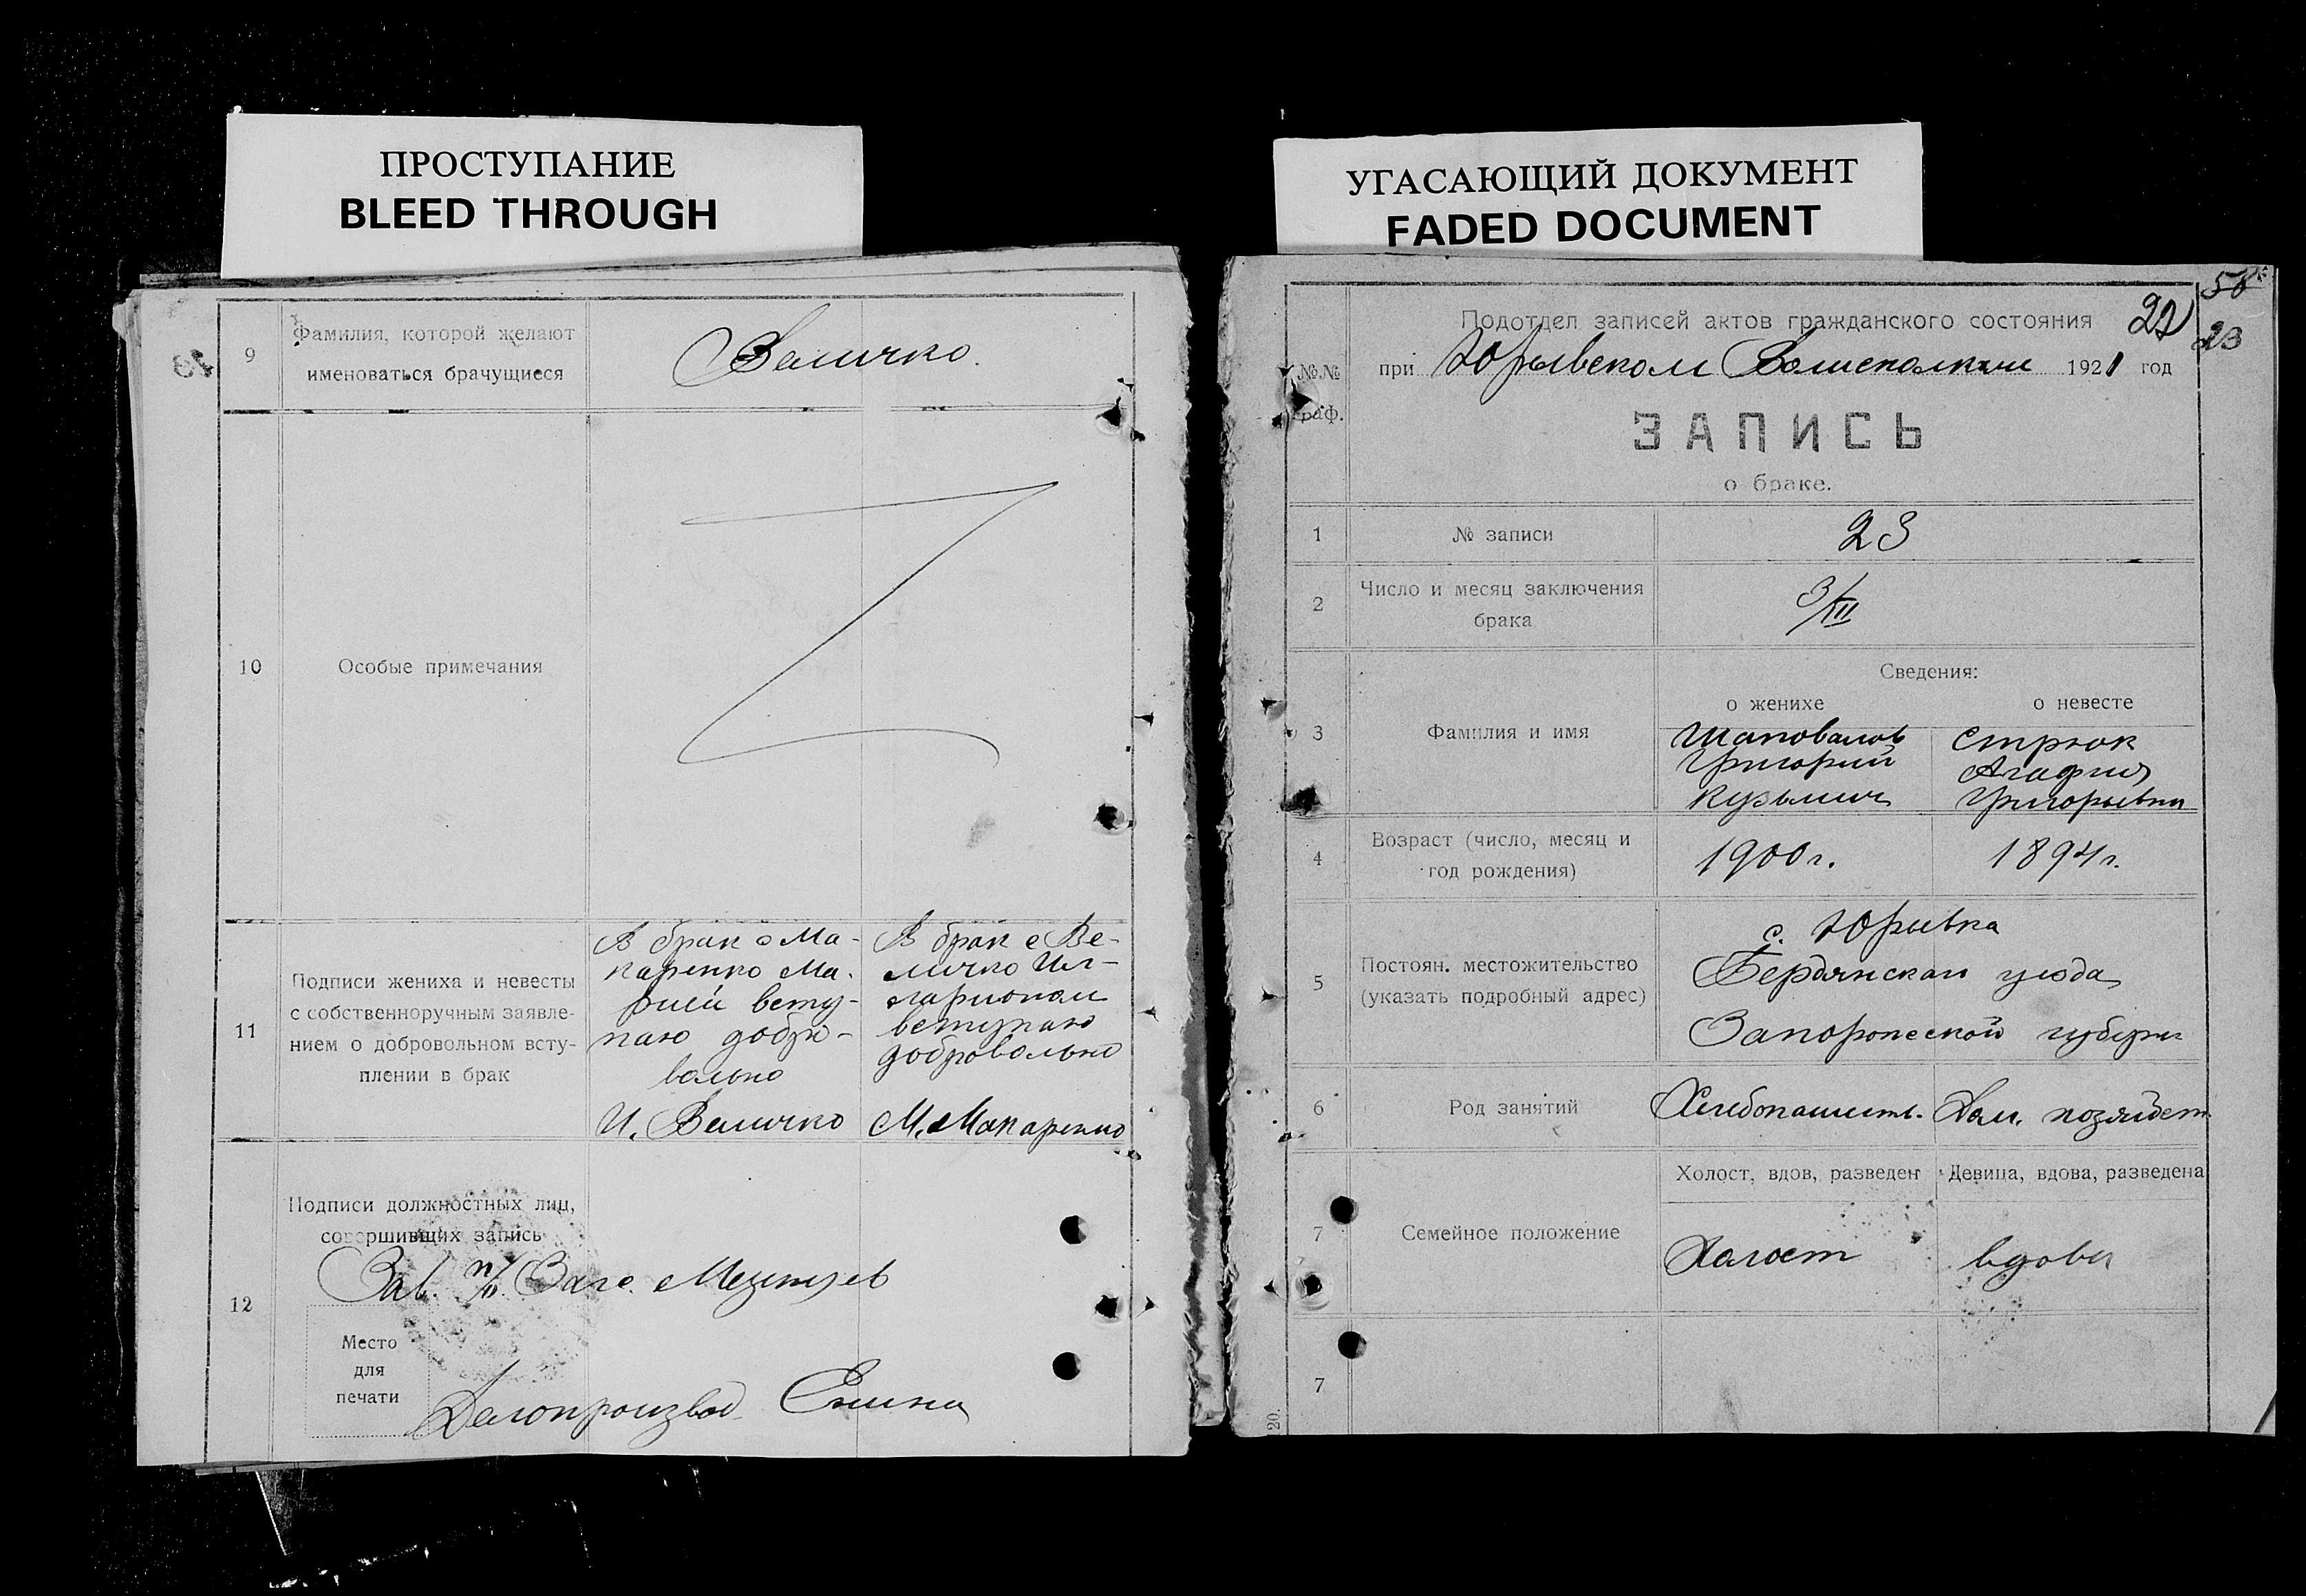 ПРОСТУПАНИЕ
BLEED THROUGH
9
Фамилия, которой желают
именоваться брачущиеся
Величко.
10
Особые примечания
11
Подписи жениха и невесты
с собственноручным заявле-
нием о добровольном всту-
плении в брак
В брак с Ма-
каренко Ма-
рией всту-
паю добро-
вольно
И. Величко
В брак с Ве-
личко Ил-
ларионом
вступаю
добровольно
М. Макаренко
12
Подписи должностных лиц,
совершивших запись
Зав. п/о Загс
Место
для
печати
Делопроизвод
УГАСАЮЩИЙ ДОКУМЕНТ
FADED DOCUMENT
58
22
23
№.№
граф.
Подотдел записей актов гражданского состояния
при Юрьевском Волисполкоме 1921 год
ЗАПИСЬ
о браке.
1
№ записи
23
2
Число и месяц заключения
брака
3/XII
Сведения:
о женихе
о невесте
3
Фамилия и имя
Шаповалов
Григорий
Кузьмич
Стрюк
Агафия
Григорьевна
4
Возраст (число, месяц и
год рождения)
1900 г.
1894 г.
5
Постоян. местожительство
(указать подробный адрес)
с. Юрьевка
Бердянскаго уезда
Запорожской губерн
6
Род занятий
Хлебопашеть.
Дом. хозяйст
7
Семейное положение
Холост, вдов, разведен
Девица, вдова, разведена
Холост
вдова
7
20.